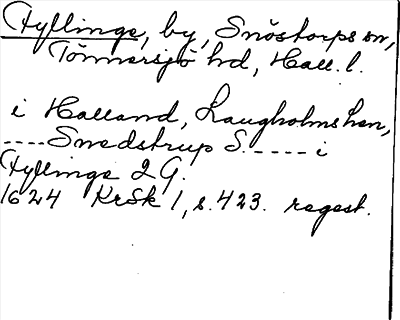 Fyllinge, by, Snöstorps sn,
Tönnersjö hd, Hall. l.
i Halland, Laugholms Len,
----Snedstrup S.----- i
Fyllinge 2 G.
1624 KrSk 1, s. 423. regest.